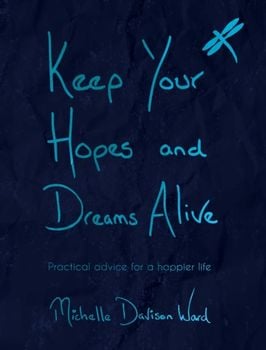 Keep Your
Hopes and
Dreams Alive
Practical advice for a happier life
Michelle Davison Ward